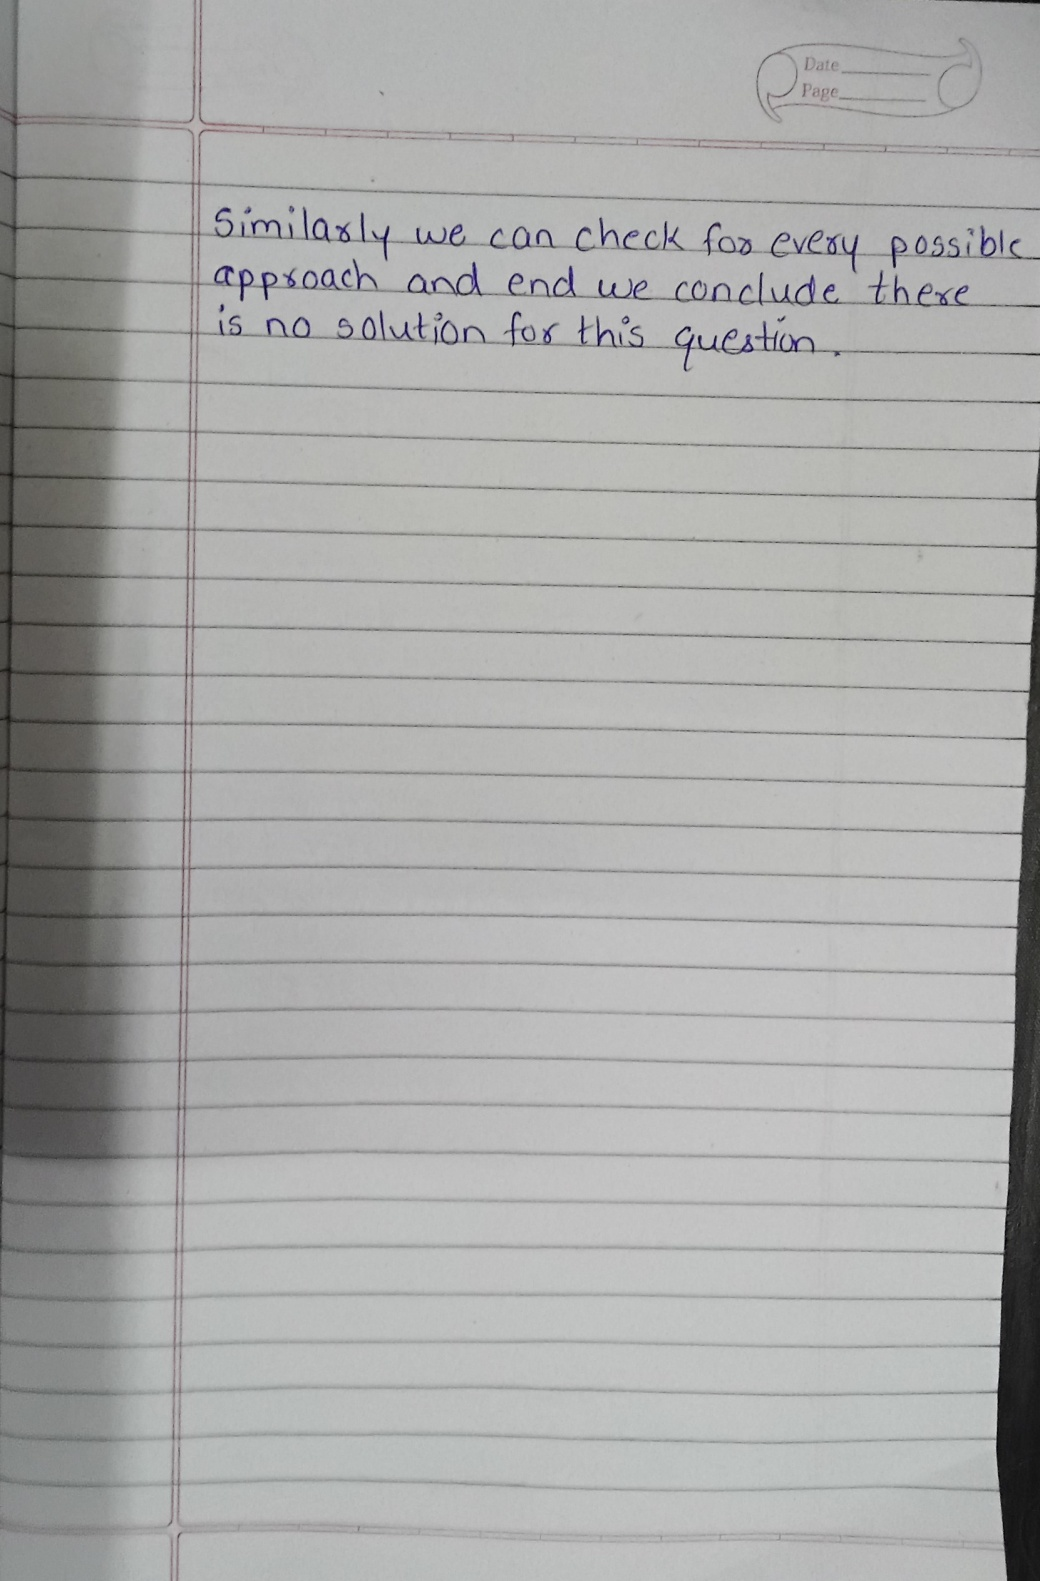 Date
Page
Similarly we can check for every possible
approach and end we conclude there
is no solution for this question.